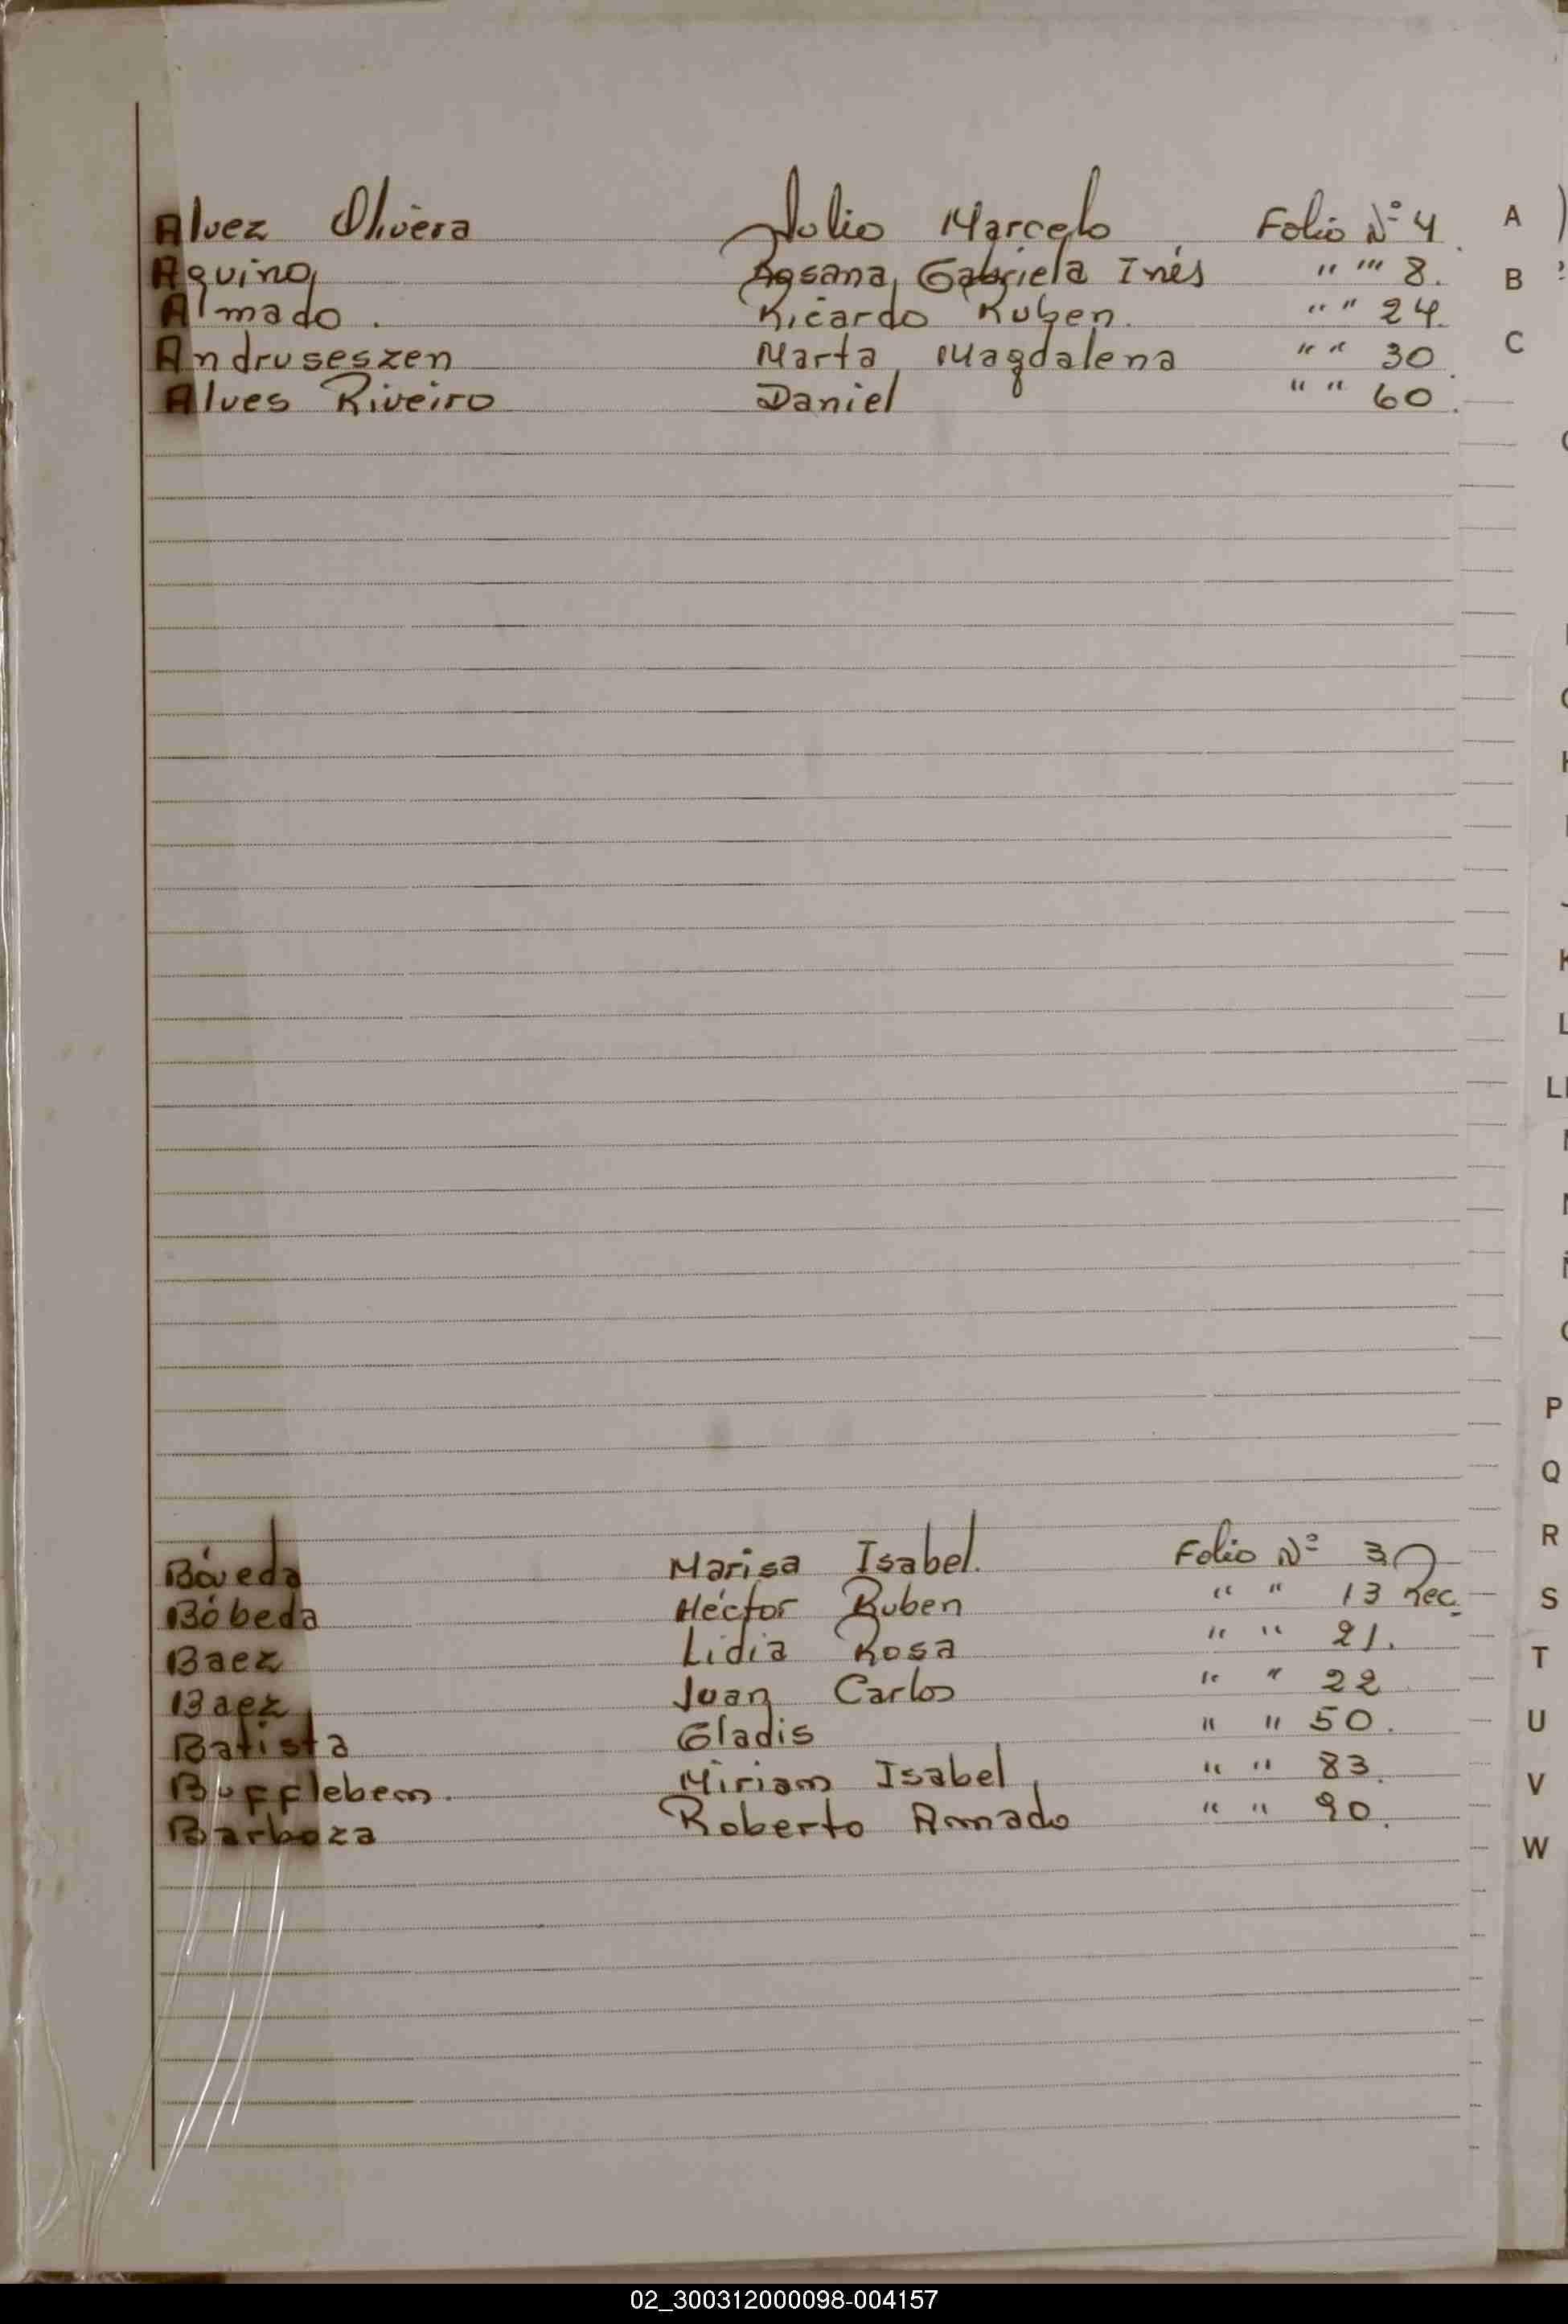 Alvez Olivera Julio Marcelo Folio Nº 4.
Aquino, Rosana, Gabriela Inés " "" 8.
Almado. Ricardo Ruben. " " 24.
Andruseszen Marta Magdalena " " 30
Alves Riveiro Daniel " " 60.
Bóveda Marisa Isabel. Folio Nº 3
Bóbeda Héctor Ruben " " 13 Rec.
Baez Lidia Rosa " " 21.
Baez Juan Carlos " " 22
Batista Gladis " " 50.
Bufflebem. Miriam Isabel " " 83.
Barboza Roberto Amado " " 90.
A
B
C
K
L
P
Q
R
S
T
U
V
W
02_300312000098-004157